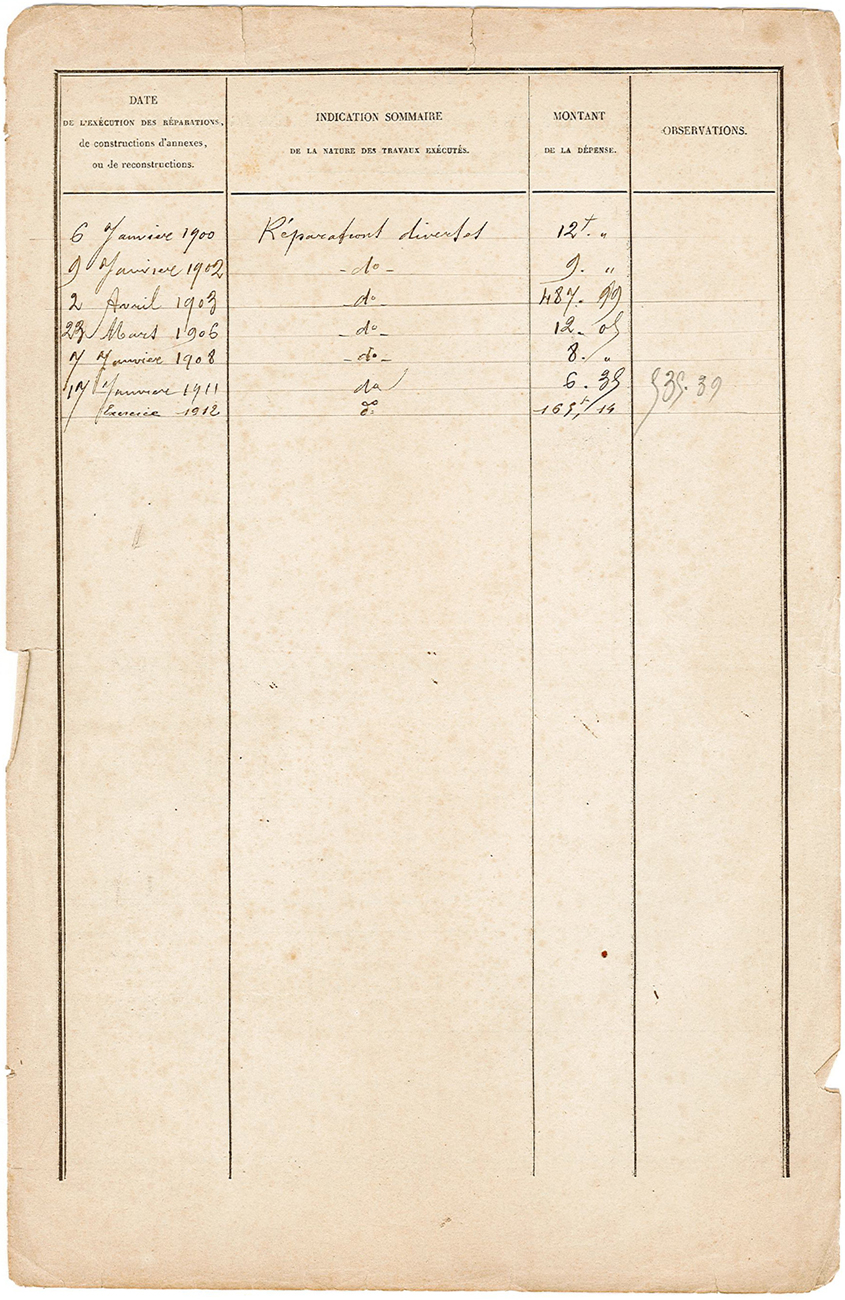 DATE
DE L'EXÉCUTION DES RÉPARATIONS,
de constructions d'annexes,
ou de reconstructions.
INDICATION SOMMAIRE
DE LA NATURE DES TRAVAUX EXÉCUTÉS.
MONTANT
DE LA DÉPENSE.
OBSERVATIONS.
6 Janvier 1900 Réparations diverses 12f. "
9 Janvier 1902 - do - 9. "
2 Avril 1903 - do - 487. 99
23 Mars 1906 - do - 12. 05
7 Janvier 1908 - do - 8. "
17 Janvier 1911 do 6. 35 535. 39
Exercice 1912 do 165f, 14